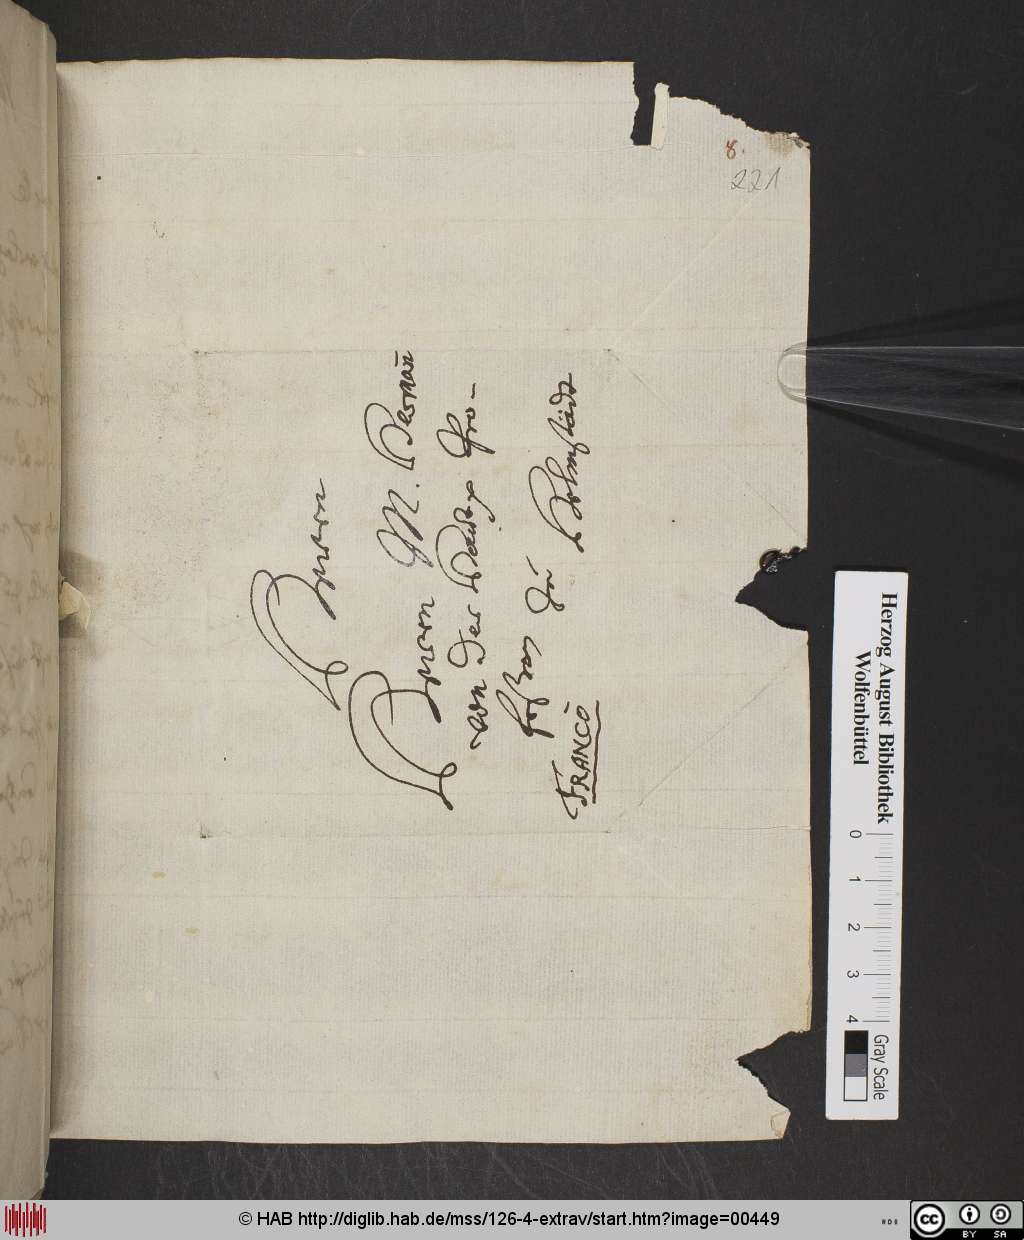 8.
221
Herrn
Herrn M. Herman
von der Hardt Pro-
feßor zu Helmstädt
FRANCO
Herzog August Bibliothek
Wolfenbüttel
0 1 2 3 4
Gray Scale
© HAB http://diglib.hab.de/mss/126-4-extrav/start.htm?image=00449
cc BY SA